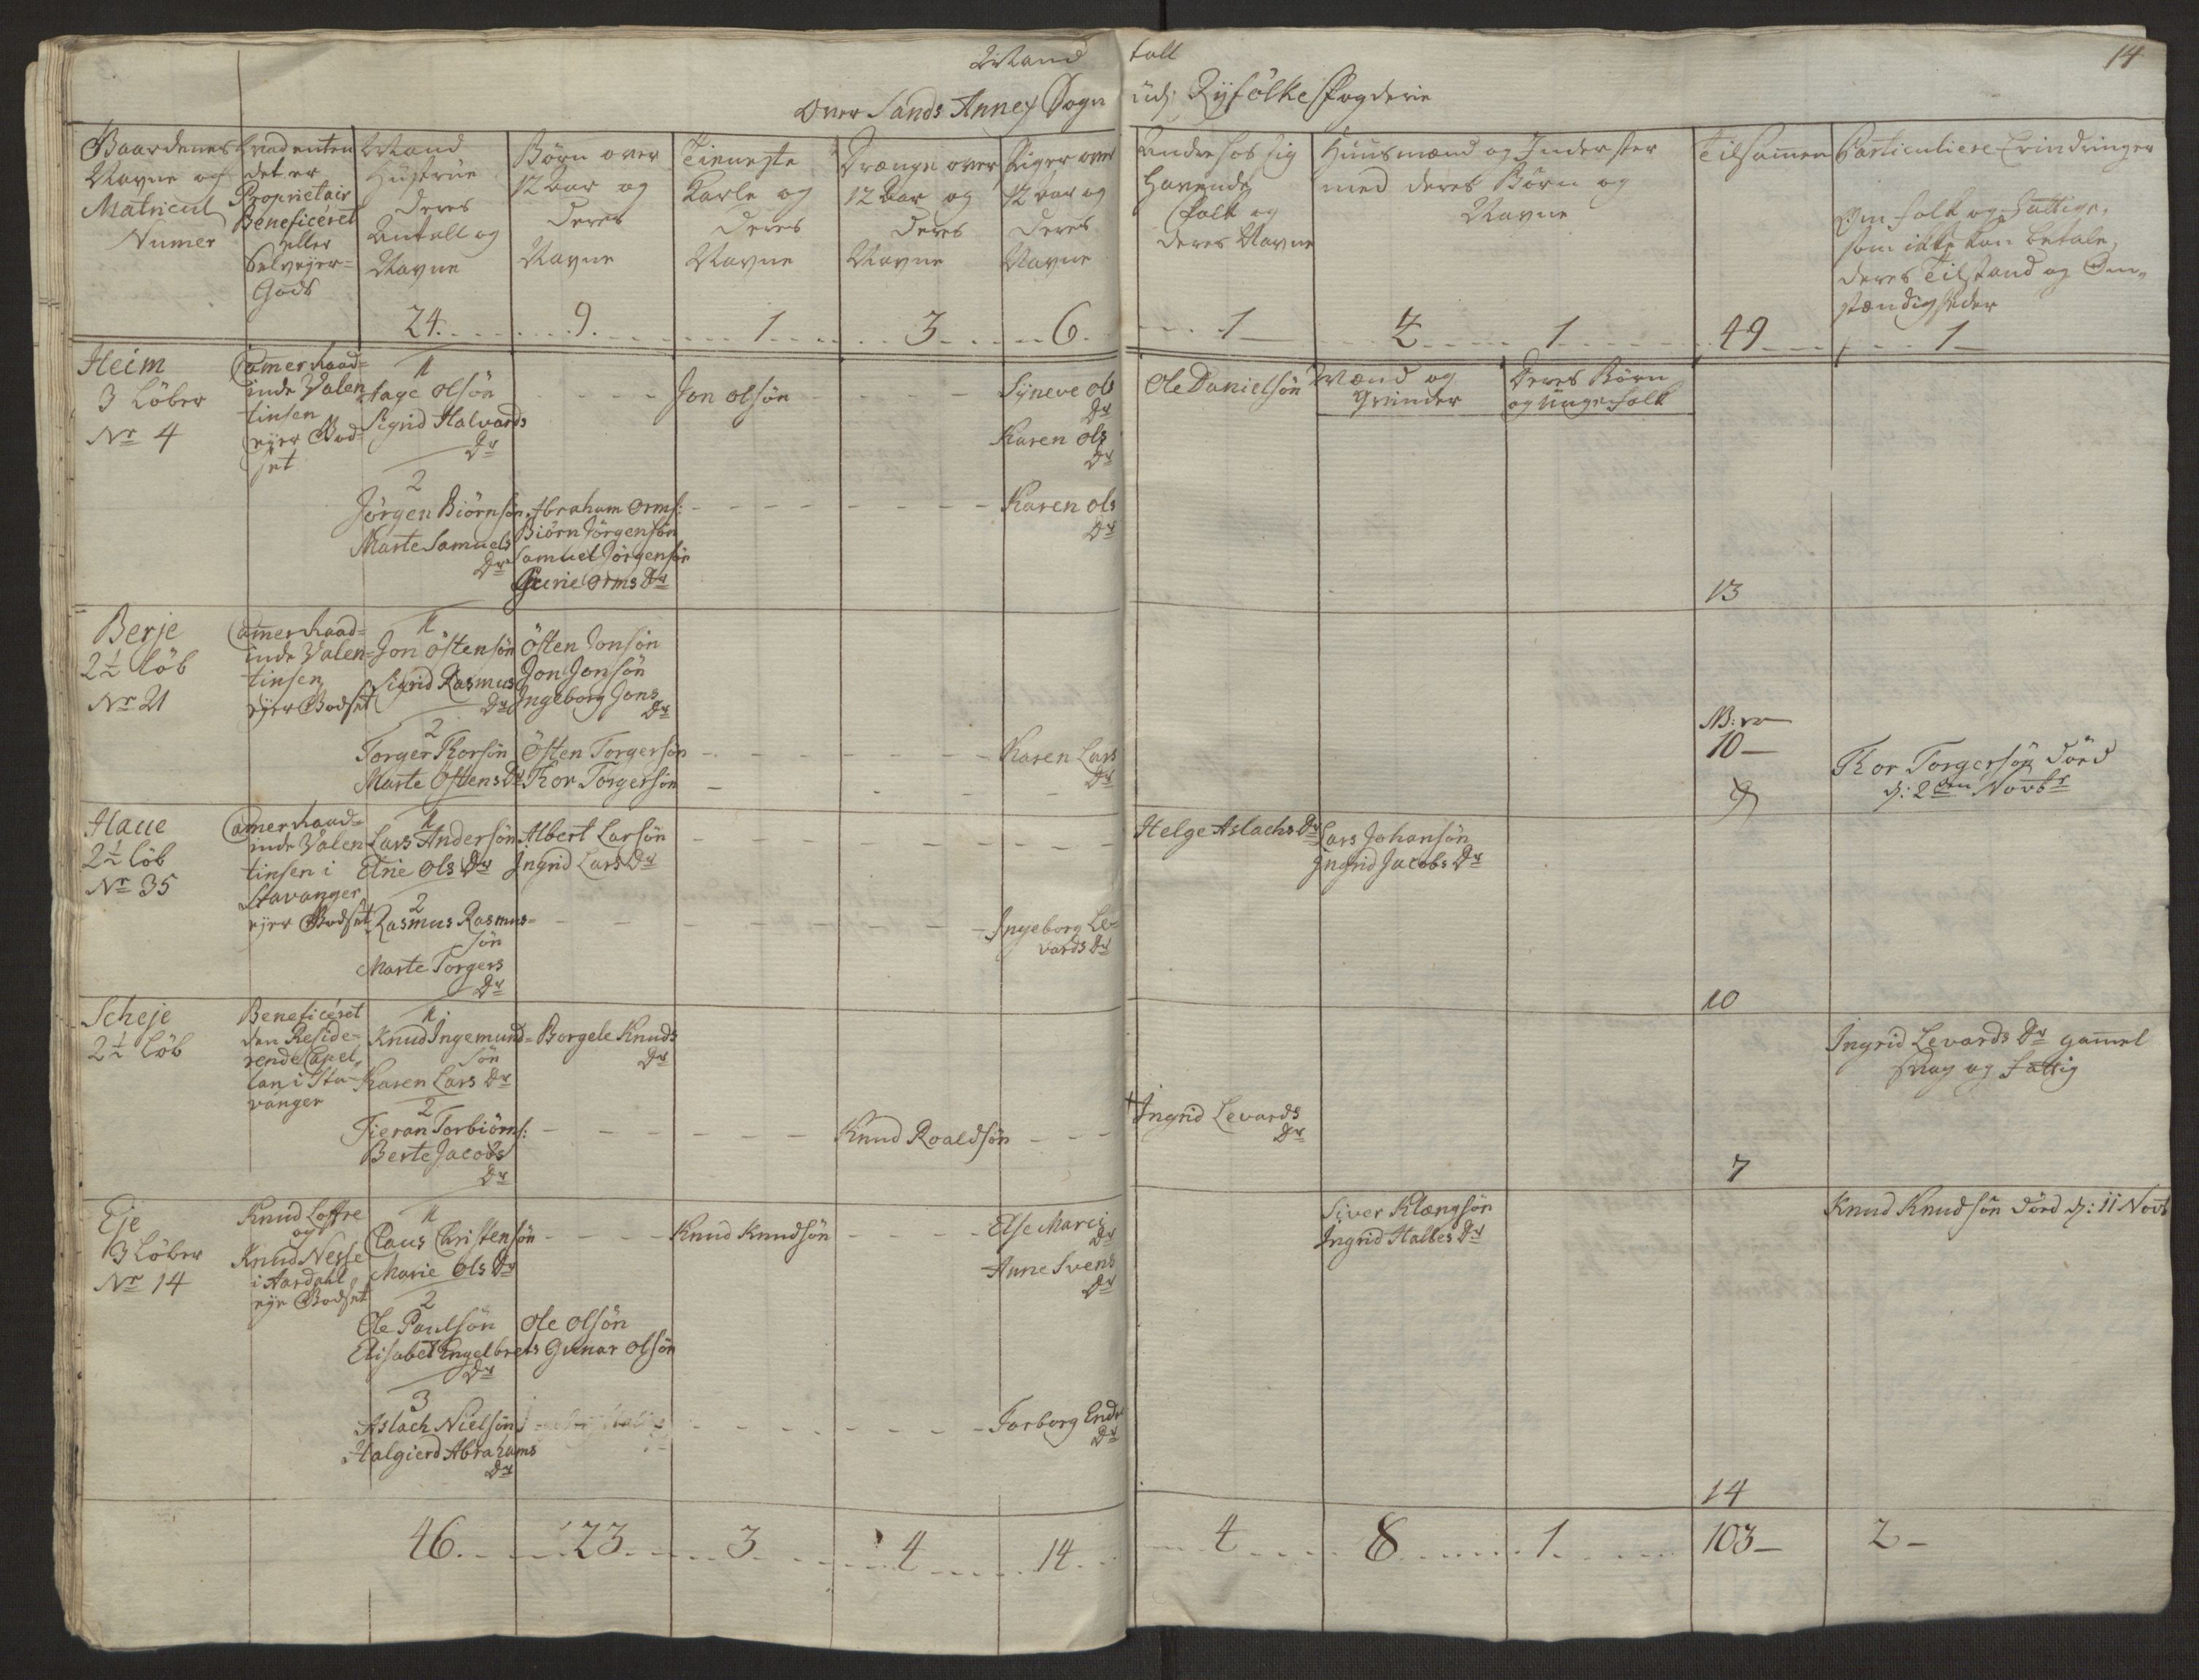 Mand tall
14
Over Sands Annex Sogn udj Ryfölke Fogderie
Gaardenes
Navne og
Matricul
Numer
det er
Proprietair
Beneficeret
eller
Selvejer-
Gods
Mand
Hustrue
deres
Antall og
Navne
Börn over
12 aar og
deres
Navne
Tieneste
Karle og
deres
Navne
Drænge over
12 aar og
deres
Navne
Piger over
12 aar og
deres
Navne
Andre hos sig
havende
Folk og
deres Navne
Huusmænd og Inderster
med deres Börn og
Navne
Tilsamen
Particuliere Erindringer
Om folk og fattige,
som ikke kan betale,
deres Tilstand og Om-
stændigheder
24 9 1 3 6 1 4 1 49 1
Heim
3 Löber
Nr 4
Camerraad-
inde Valen-
tinsen
ejer Bod-
set
1
Aage Olsön
Sigrid Halvards
Dr
Jon Olsön
Syneve Ols
Dr
Karen Ols
Dr
Ole Danielsön
Mænd og
Qvinder
Deres Börn
og Ungefolk
2
Jörgen Biörnsön
Marte Samuels
Dr
Abraham Orms:
Biörn Jörgensön
Samuel Jörgensön
Gurie Orms Dr
Karen Ols
Dr
13
Berje
2½ Löb
Nr 21
Camerraad-
inde Valen-
tinsen
ejer Bodset
1
Jon Östensön
Sigrid Rasmus
Dr
Östen Jonsön
Jon Jonsön
Ingeborg Jons
Dr
2
Torger Thorsön
Marte Östens Dr
Östen Torgersön
Thor Torgersön
Karen Lars
Dr
10
9
Thor Torgersön Död
d: 2den Novbr
Haue
2½ Löb
Nr 35
Camerraad-
inde Valen-
tinsen i
Stavanger
ejer Bodset
1
Lars Andersön
Elie Ols Dr
Albert Larsön
Ingrid Lars Dr
Helge Aslachs Dr
Lars Johansön
Ingrid Jacobs Dr
2
Rasmus Rasmus-
sön
Marte Torgers
Dr
Ingeborg Le-
vards Dr
10
Scheje
2½ Löb
Beneficeret
den Reside-
rende Capel-
lan i Sta-
vanger
1
Knud Ingemund-
sön
Karen Lars Dr
Borgele Knuds
Dr
Ingrid Levards Dr gamel
svag og fattig
2
Fieran Torbiörns:
Berte Jacobs
Dr
Knud Roaldsön
Ingrid Levards
Dr
7
Eje
3 Löber
Nr 14
Knud Loftre
og
Knud Nesse
i Aardahl
eje Bodset
1
Claus Christensön
Marie Ols Dr
Knud Knudsön
Else Marci
Dr
Anne Svens
Dr
Siver Klængsön
Ingrid Halles Dr
Knud Knudsön Död d: 11 Novb
2
Ole Paulsön
Elisabet Engelbrets
Dr
Ole Olsön
Gunar Olsön
3
Aslach Nielsön
Halgierd Abrahams
Dr
Torborg Endr
Dr
14
46 23 3 4 14 4 8 1 103 2